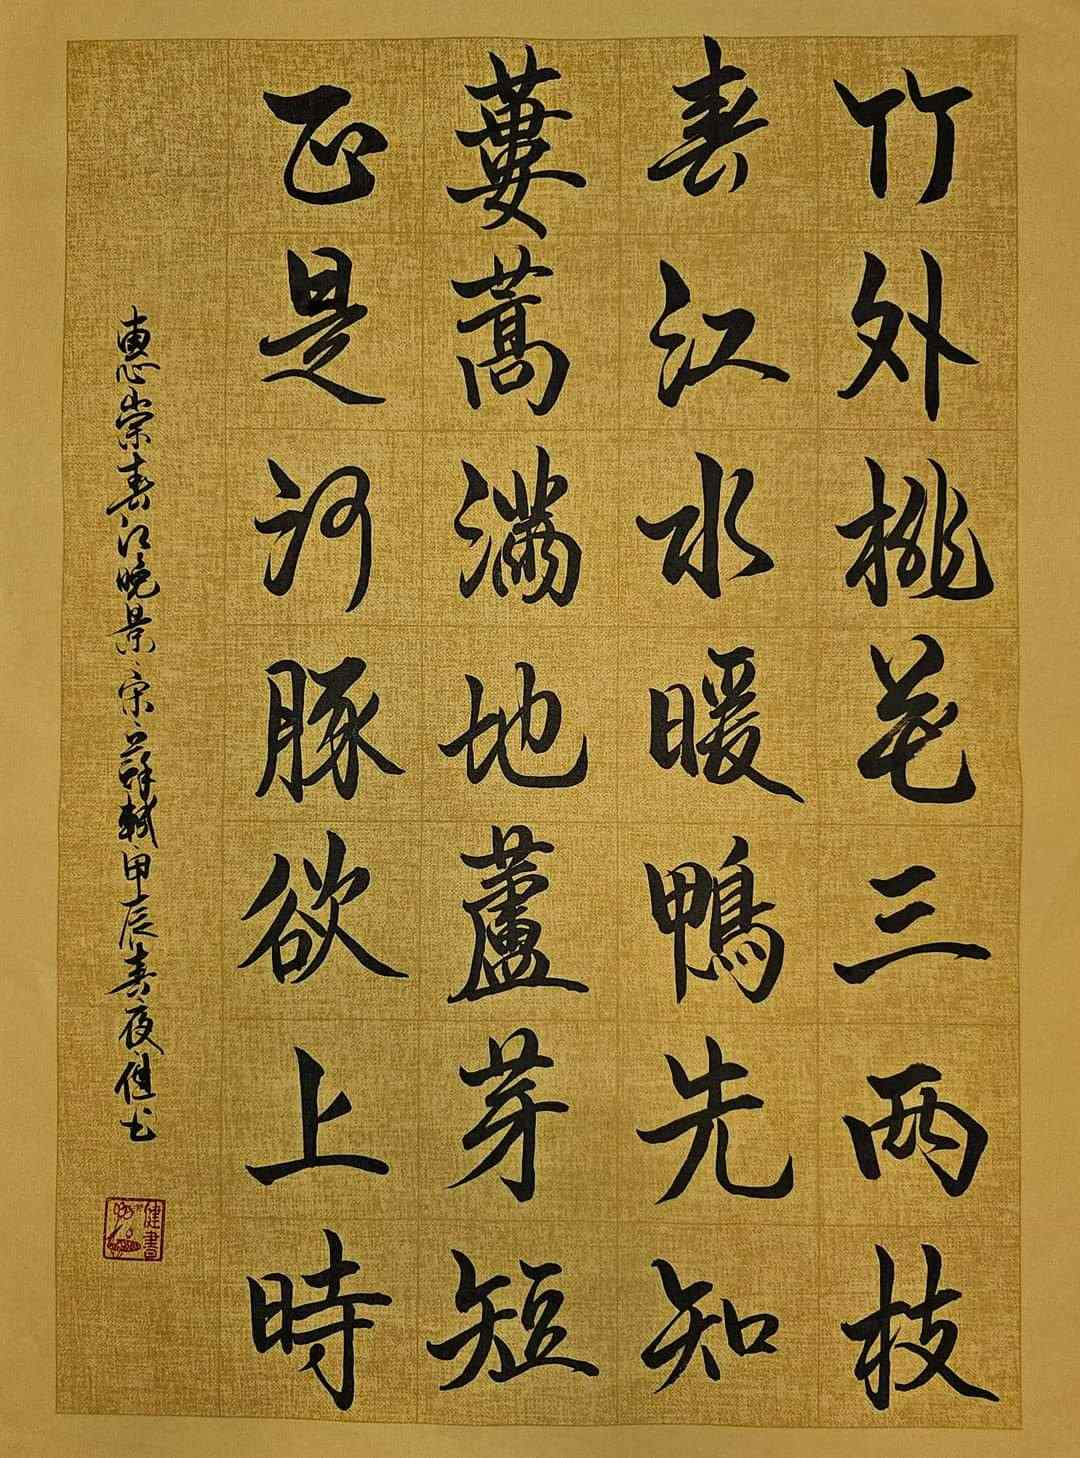 竹外桃花三兩枝
春江水暖鴨先知
蔞蒿滿地蘆芽短
正是河豚欲上時
惠崇春江晚景宋蘇軾甲辰春夜健書
健書